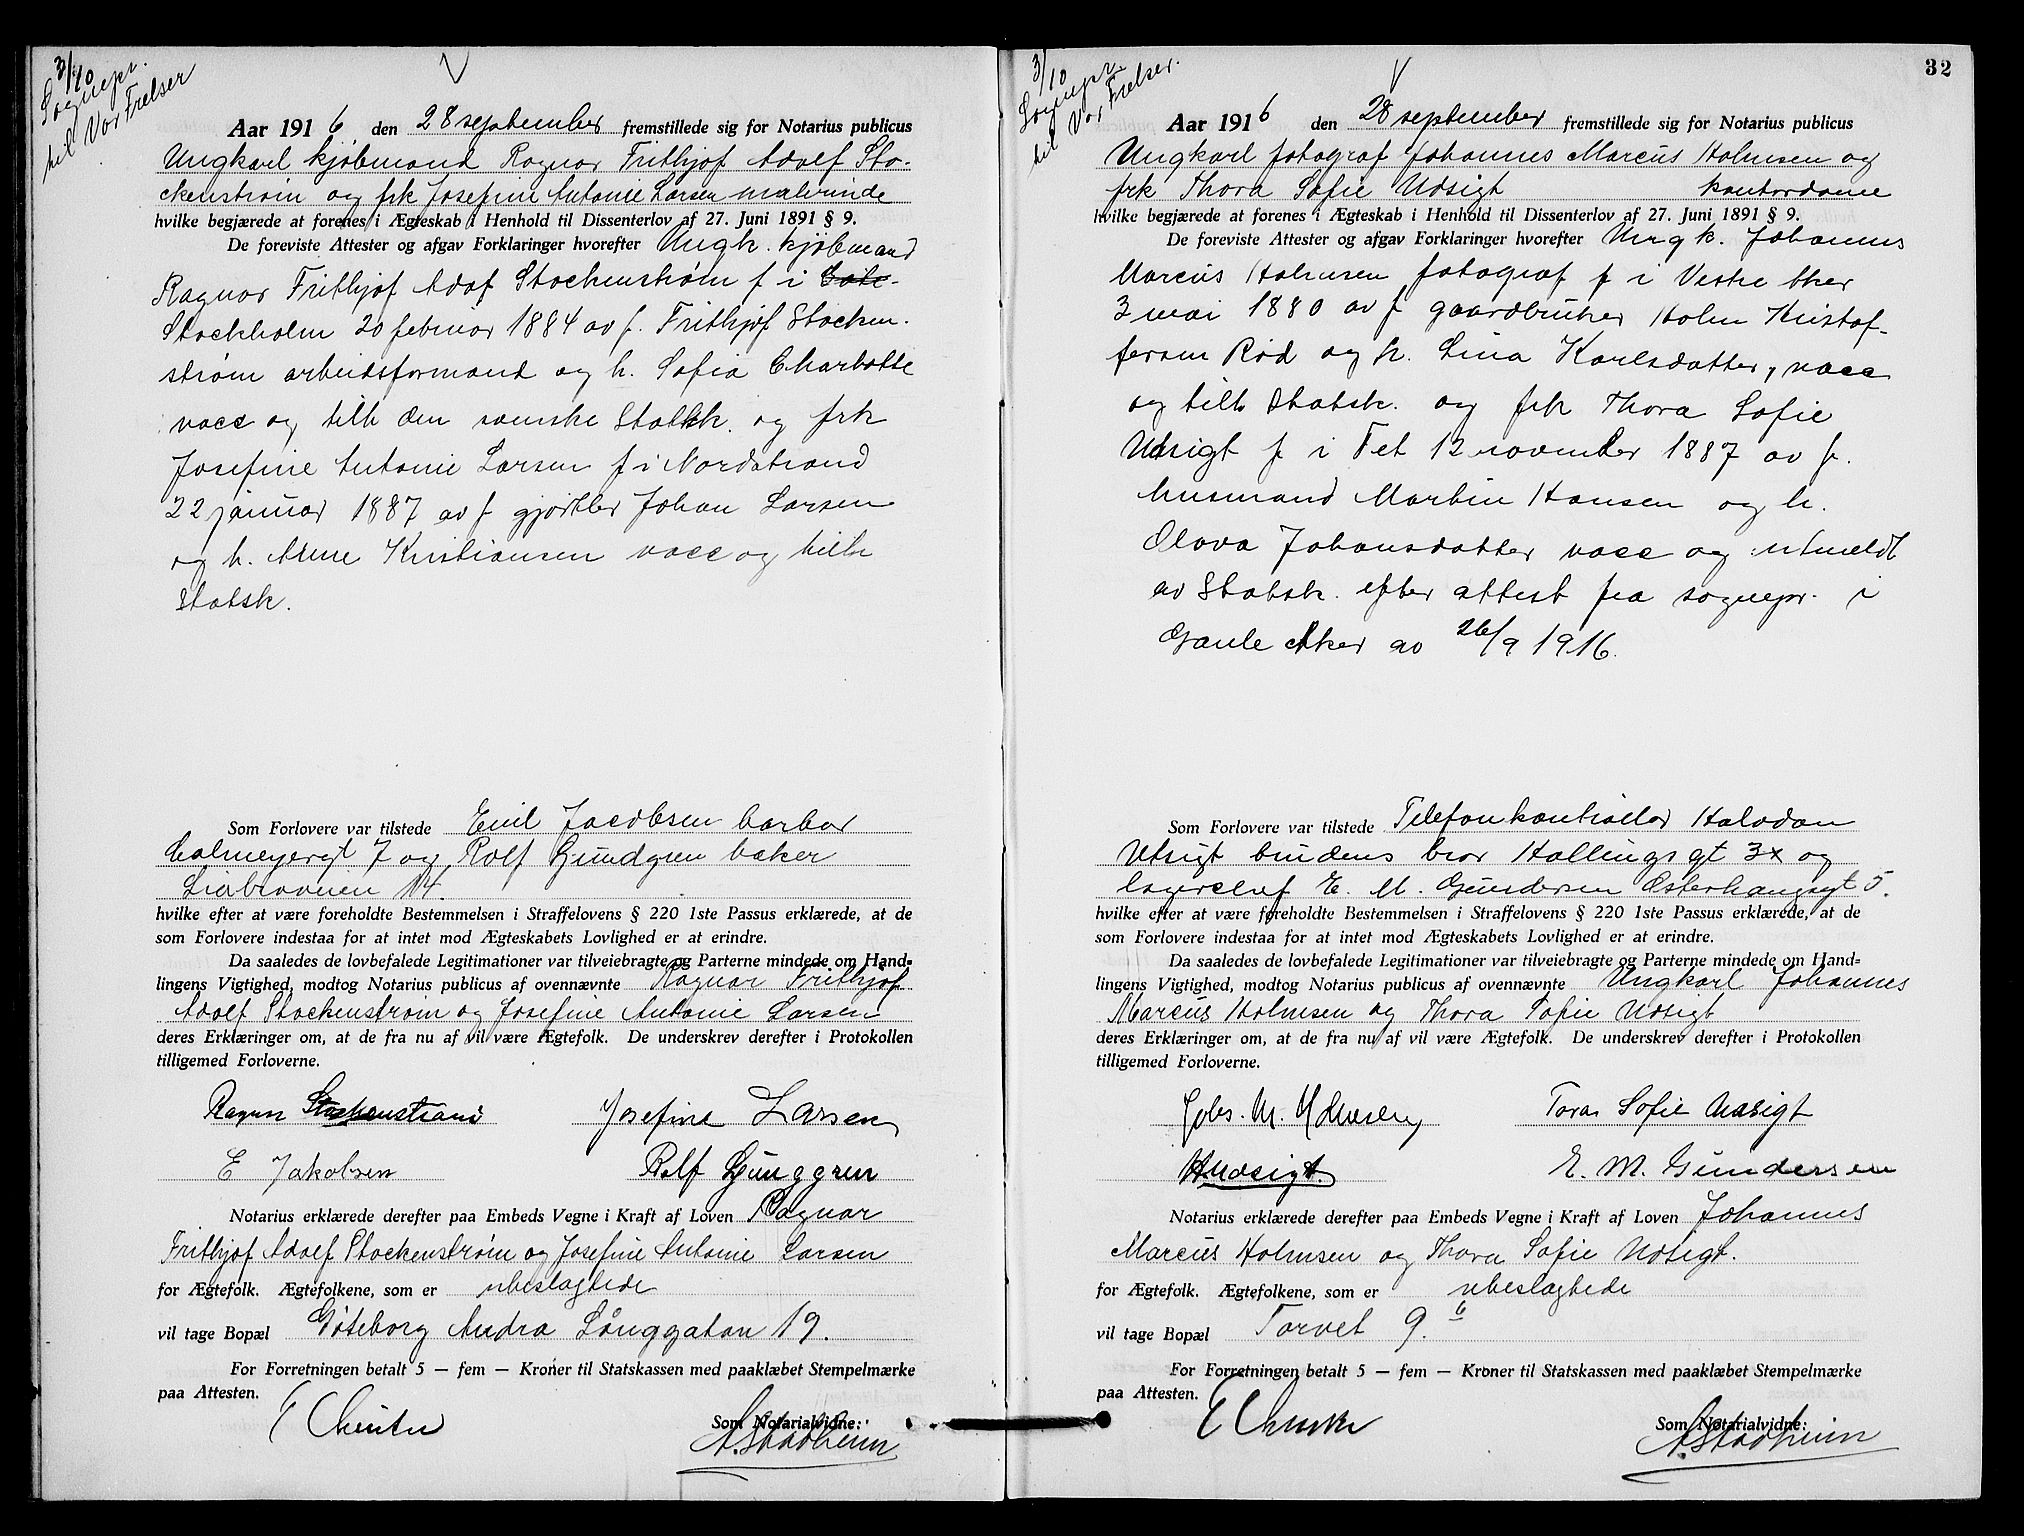 3/10
Sognepr.
til Vor Frelser
Aar 1916 den 28 september fremstillede sig for Notarius publicus
Ungkarl kjøbmand Ragnar Frithjof Adolf Sto-
ckenstrøm og frk Josefine Antonie Larsen malerinde
hvilke begjærede at forenes i Ægteskab i Henhold til Dissenterlov af 27. Juni 1891 § 9.
De foreviste Attester og afgav Forklaringer hvorefter Ungk. kjøbmand
Ragnar Frithjof Adof Stockenstrøm f i
Stockholm 20 februar 1884 av f. Frithjof Stocken-
strøm arbeidsformand og h. Sofia Charlotte
vacc og tilh den svenske Statsk. og frk
Josefine Antonie Larsen f i Nordstrand
22 januar 1887 av f gjørtler Johan Larsen
og h. Anne Kristiansen vacc og tilh
Statsk.
Som Forlovere var tilstede Emil Jacobsen barber
Calmeyergt 7 og Rolf Gundgren baker
Liabroveien 14.
hvilke efter at være foreholdte Bestemmelsen i Straffelovens § 220 1ste Passus erklærede, at de
som Forlovere indestaa for at intet mod Ægteskabets Lovlighed er at erindre.
Da saaledes de lovbefalede Legitimationer var tilveiebragte og Parterne mindede om Hand-
lingens Vigtighed, modtog Notarius publicus af ovennævnte Ragnar Frithjof
Adolf Stockenstrøm og Josefine Antonie Larsen
deres Erklæringer om, at de fra nu af vil være Ægtefolk. De underskrev derefter i Protokollen
tilligemed Forloverne.
Ragnar Stockenstrøm Josefine Larsen
E Jakobsen Rolf Gunggren
Notarius erklærede derefter paa Embeds Vegne i Kraft af Loven Ragnar
Frithjof Adolf Stockenstrøm og Josefine Antonie Larsen
for Ægtefolk. Ægtefolkene, som er ubeslagtede
vil tage Bopæl Gøteborg Andra Långgatan 19.
For Forretningen betalt 5 — fem — Kroner til Statskassen med paaklæbet Stempelmærke
paa Attesten.
Som Notarialvidne:
A. Stadheim
32
3/10
Sognepr.
til Vor Frelser.
Aar 1916 den 28 september fremstillede sig for Notarius publicus
Ungkarl fotograf Johannes Marcus Holmsen og
frk Thora Sofie Udsigt kontordame
hvilke begjærede at forenes i Ægteskab i Henhold til Dissenterlov af 27. Juni 1891 § 9.
De foreviste Attester og afgav Forklaringer hvorefter Ungk. Johannes
Marcus Holmsen fotograf f i Vestre Aker
3 mai 1880 av f gaardbruker Holm Kristof-
fersen Rød og h. Lina Karlsdatter, vacc
og tilh Statsk. og frk Thora Sofie
Udsigt f i Fet 12 november 1887 av f.
husmand Martin Hansen og h.
Olava Johansdatter vacc og utmeldt
av Statsk. efter attest fra sognepr. i
Gamle Aker av 26/9 1916.
Som Forlovere var tilstede Telefonkontrollør Halvdan
Utsigt brudens bror Hallingsgt 3x og
lagerchef E. M. Gundersen Osterhausgt 5.
hvilke efter at være foreholdte Bestemmelsen i Straffelovens § 220 1ste Passus erklærede, at de
som Forlovere indestaa for at intet mod Ægteskabets Lovlighed er at erindre.
Da saaledes de lovbefalede Legitimationer var tilveiebragte og Parterne mindede om Hand-
lingens Vigtighed, modtog Notarius publicus af ovennævnte Ungkarl Johannes
Marcus Holmsen og Thora Sofie Udsigt
deres Erklæringer om, at de fra nu af vil være Ægtefolk. De underskrev derefter i Protokollen
tilligemed Forloverne.
Johs. M. Holmsen Tora Sofie Udsigt
H Udsigt. E. M. Gundersen
Notarius erklærede derefter paa Embeds Vegne i Kraft af Loven Johannes
Marcus Holmsen og Thora Sofie Udsigt.
for Ægtefolk. Ægtefolkene, som er ubeslagtede
vil tage Bopæl Torvet 9. b
For Forretningen betalt 5 — fem — Kroner til Statskassen med paaklæbet Stempelmærke
paa Attesten.
Som Notarialvidne:
A. Stadheim